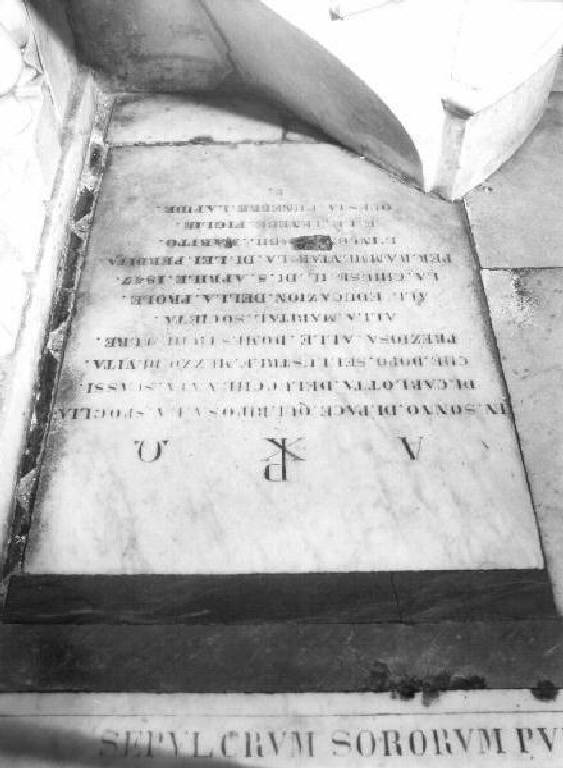 Α ☧ Ω
IN.SONNO.DI.PACE.QUI.RIPOSA.LA.SPOGLIA
DI.CARLOTTA.DELUCCHI.NATA.
CHE.DOPO.SEI.LUSTRI.E.MEZZO.DI.VITA.
PREZIOSA.ALLE.DOMESTICHE.CURE.
ALLA.MARITAL.SOCIETÀ.
ALL'EDUCAZION.DELLA.PROLE.
LA.CHIESE.IL.DI.8.APRILE.1847.
PER.RAMMENTAR.LA.DI.LEI.PERDITA.
MARITO.
E.LE.TENERE.FIGLIE.
QUESTA.FUNEBRE.LAPIDE.
P.
SEPVLCRVM SORORVM PV